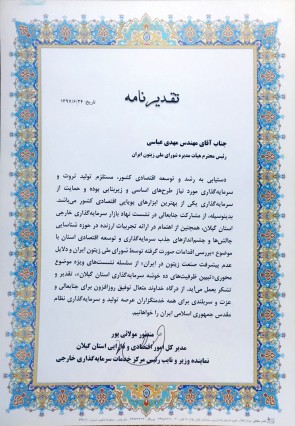 تقدیرنامه
تاریخ: ۱۳۹۷/۶/۲۶
جناب آقای مهندس مهدی عباسی
رئیس محترم هیات مدیره شورای ملی زیتون ایران
دستیابی به رشد و توسعه اقتصادی کشور، مستلزم تولید ثروت و
سرمایه‌گذاری مورد نیاز طرح‌های اساسی و زیربنایی بوده و حمایت از
سرمایه‌گذاری یکی از بهترین ابزارهای پویایی اقتصادی کشور می‌باشد.
بدینوسیله، از مشارکت جنابعالی در نشست نهاد بازار سرمایه‌گذاری خارجی
استان گیلان، همچنین از اهتمام در ارائه تجربیات ارزنده در حوزه شناسایی
چالش‌ها و چشم‌اندازهای جذب سرمایه‌گذاری و توسعه اقتصادی استان با
موضوع «بررسی اقدامات صورت گرفته توسط شورای ملی زیتون ایران و دلایل
عدم پیشرفت صنعت زیتون در ایران»، از سلسله نشست‌های ویژه موضوع
محوری «تبیین ظرفیت‌های ده خوشه سرمایه‌گذاری استان گیلان»، تقدیر و
تشکر بعمل می‌آید. از درگاه خداوند متعال توفیق روزافزون برای جنابعالی و
عزت و سربلندی برای همه خدمتگزاران عرصه تولید و سرمایه‌گذاری نظام
مقدس جمهوری اسلامی ایران را خواهانیم.
منصور مولائی پور
مدیر کل امور اقتصادی و دارایی استان گیلان
نماینده وزیر و نایب رئیس مرکز خدمات سرمایه‌گذاری خارجی